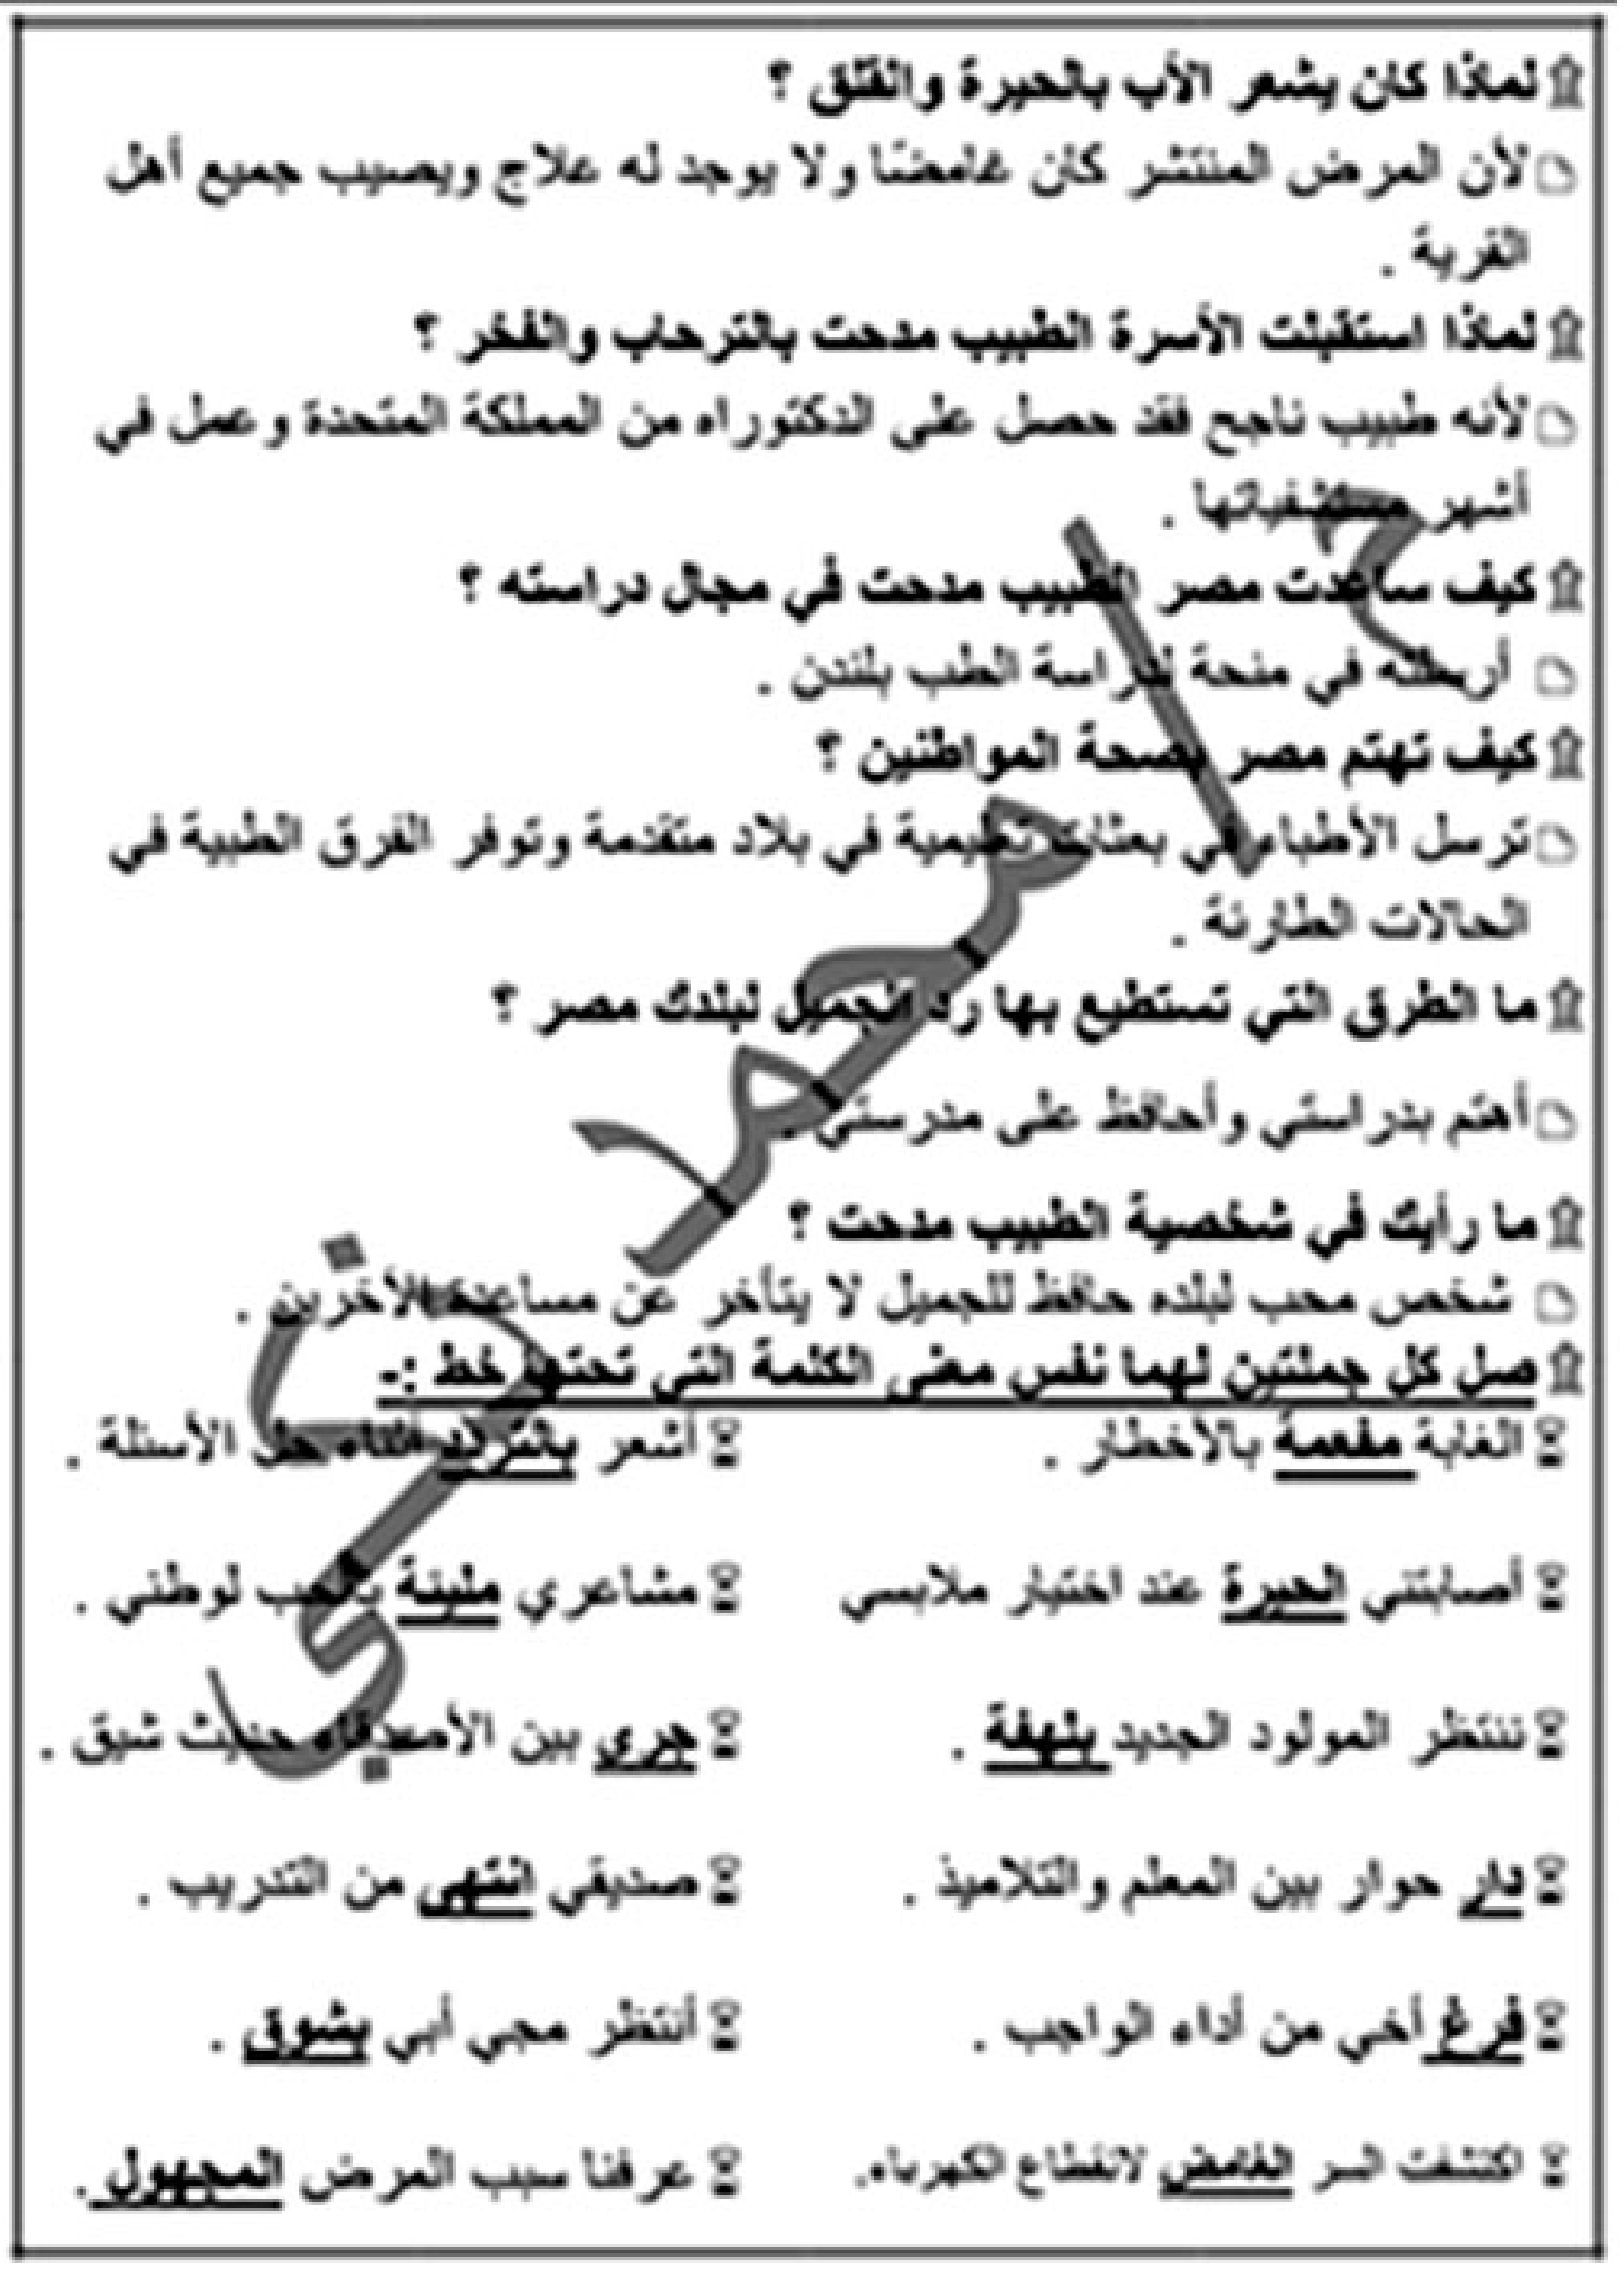 لماذا كان يشعر الأب بالحيرة والقلق ؟
لأن المرض المنتشر كان غامضًا ولا يوجد له علاج ويصيب جميع أهل
القرية .
لماذا استقبلت الأسرة الطبيب مدحت بالترحاب والفخر ؟
لأنه طبيب ناجح فقد حصل على الدكتوراه من المملكة المتحدة وعمل في
أشهر مستشفياتها .
كيف ساعدت مصر الطبيب مدحت في مجال دراسته ؟
أرسلته في منحة لدراسة الطب بلندن .
كيف تهتم مصر بصحة المواطنين ؟
ترسل الأطباء في بعثات تعليمية في بلاد متقدمة وتوفر الفرق الطبية في
الحالات الطارئة .
ما الطرق التي تستطيع بها رد الجميل لبلدك مصر ؟
أهتم بدراستي وأحافظ على مدرستي .
ما رأيك في شخصية الطبيب مدحت ؟
شخص محب لبلده حافظ للجميل لا يتأخر عن مساعدة الأخرين .
صل كل جملتين لهما نفس معنى الكلمة التي تحتها خط :-
الغابة مفعمة بالأخطار . أشعر بالتردد أثناء حل الأسئلة .
أصابتني الحيرة عند اختيار ملابسي مشاعري مليئة بالحب لوطني .
ننتظر المولود الجديد بلهفة . جرى بين الأصدقاء حديث شيق .
دار حوار بين المعلم والتلاميذ . صديقي انتهى من التدريب .
فرغ أخي من أداء الواجب . أنتظر مجي أبي بشوق .
اكتشفت السر الغامض لانقطاع الكهرباء. عرفنا سبب المرض المجهول .